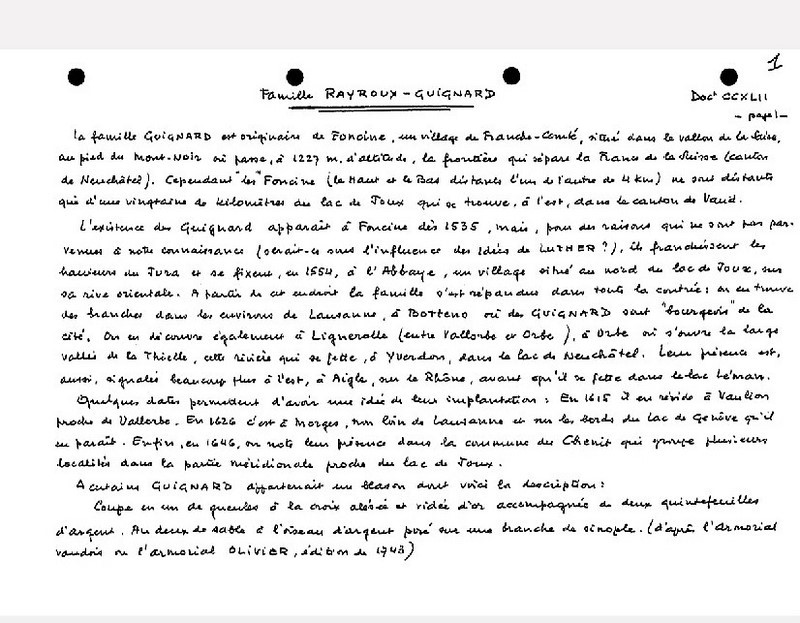 1
Famille RAYROUX-GUIGNARD Doct CCXLII
- page 1 -
La famille GUIGNARD est originaire de Foncine, un village de Franche-Comté, situé dans le vallon de la
au pied du Mont-Noir où passe, à 1227 m. d'altitude, la frontière qui sépare la France de la Suisse (canton
de Neuchâtel). Cependant "les" Foncine (le Haut et le Bas distants l'un de l'autre de 4 km) ne sont distants
que d'une vingtaine de kilomètres du lac de Joux qui se trouve, à l'est, dans le canton de Vaud.
L'existence des Guignard apparaît à Foncine dès 1535, mais, pour des raisons qui ne sont pas par-
venues à notre connaissance (serait-ce sous l'influence des Idées de LUTHER?), ils franchissent les
hauteurs du Jura et se fixent, en 1554, à l'Abbaye, un village situé au nord du lac de Joux, sur
sa rive orientale. A partir de cet endroit la famille s'est répandue dans toute la contrée: on en trouve
des branches dans les environs de Lausanne, à BOTTENS où des GUIGNARD sont "bourgeois" de la
cité. On en découvre également à Lignerolle (entre Vallorbe et Orbe), à Orbe où s'ouvre la large
vallée de la Thielle, cette rivière qui se jette, à Yverdon, dans le lac de Neuchâtel. Leur présence est,
aussi, signalée beaucoup plus à l'est, à Aigle, sur le Rhône, avant qu'il se jette dans le lac Léman.
Quelques dates permettent d'avoir une idée de leur implantation: En 1615 il en réside à Vaulion
proche de Vallorbe. En 1626 c'est à Morges, non loin de Lausanne et sur les bords du lac de Genève qu'il
en paraît. Enfin, en 1646, on note leur présence dans la commune du Chenit qui groupe plusieurs
localités dans la partie méridionale proche du lac de Joux.
A certains GUIGNARD appartenait un blason dont voici la description:
Coupe en un de gueules à la croix alésée et vidée d'or accompagnée de deux quintefeuilles
d'argent. Au deux de sable à l'oiseau d'argent posé sur une branche de sinople. (d'après l'Armorial
vaudois ou l'armorial OLIVIER, édition de 1743)